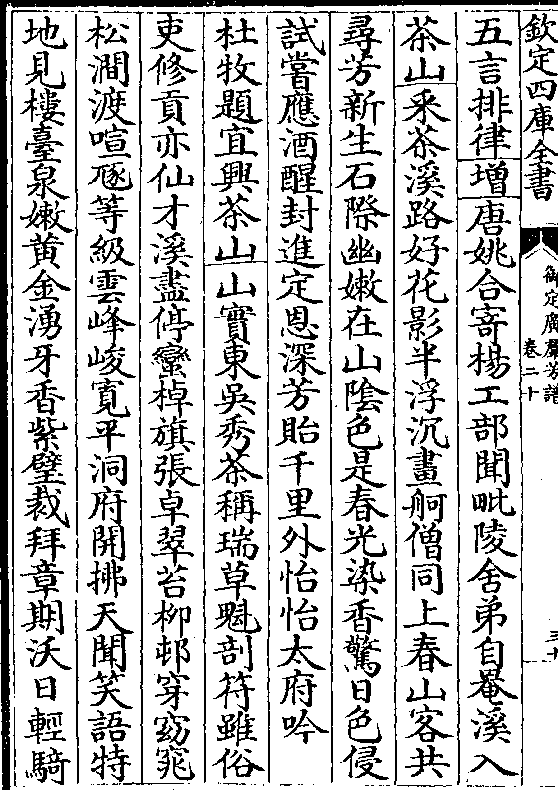 欽定四庫全書
御定廣羣芳譜
卷二十
五言排律增唐姚合寄楊工部聞毗陵舍弟自罨溪入
茶山采茶溪路好花影半浮沉畫舸僧同上春山客共
尋芳新生石際幽嫩在山陰色是春光染香驚日色侵
試嘗應酒醒封進定恩深芳貽千里外怡怡太府吟
杜牧題宜興茶山山實東吳秀茶稱瑞草魁剖符雖俗
吏修貢亦仙才溪盡停蠻棹旗張卓翠苔柳邨穿窈窕
松澗渡喧豗等級雲峰峻寬平洞府開拂天聞笑語特
地見樓臺泉嫩黃金湧牙香紫璧裁拜章期沃日輕騎